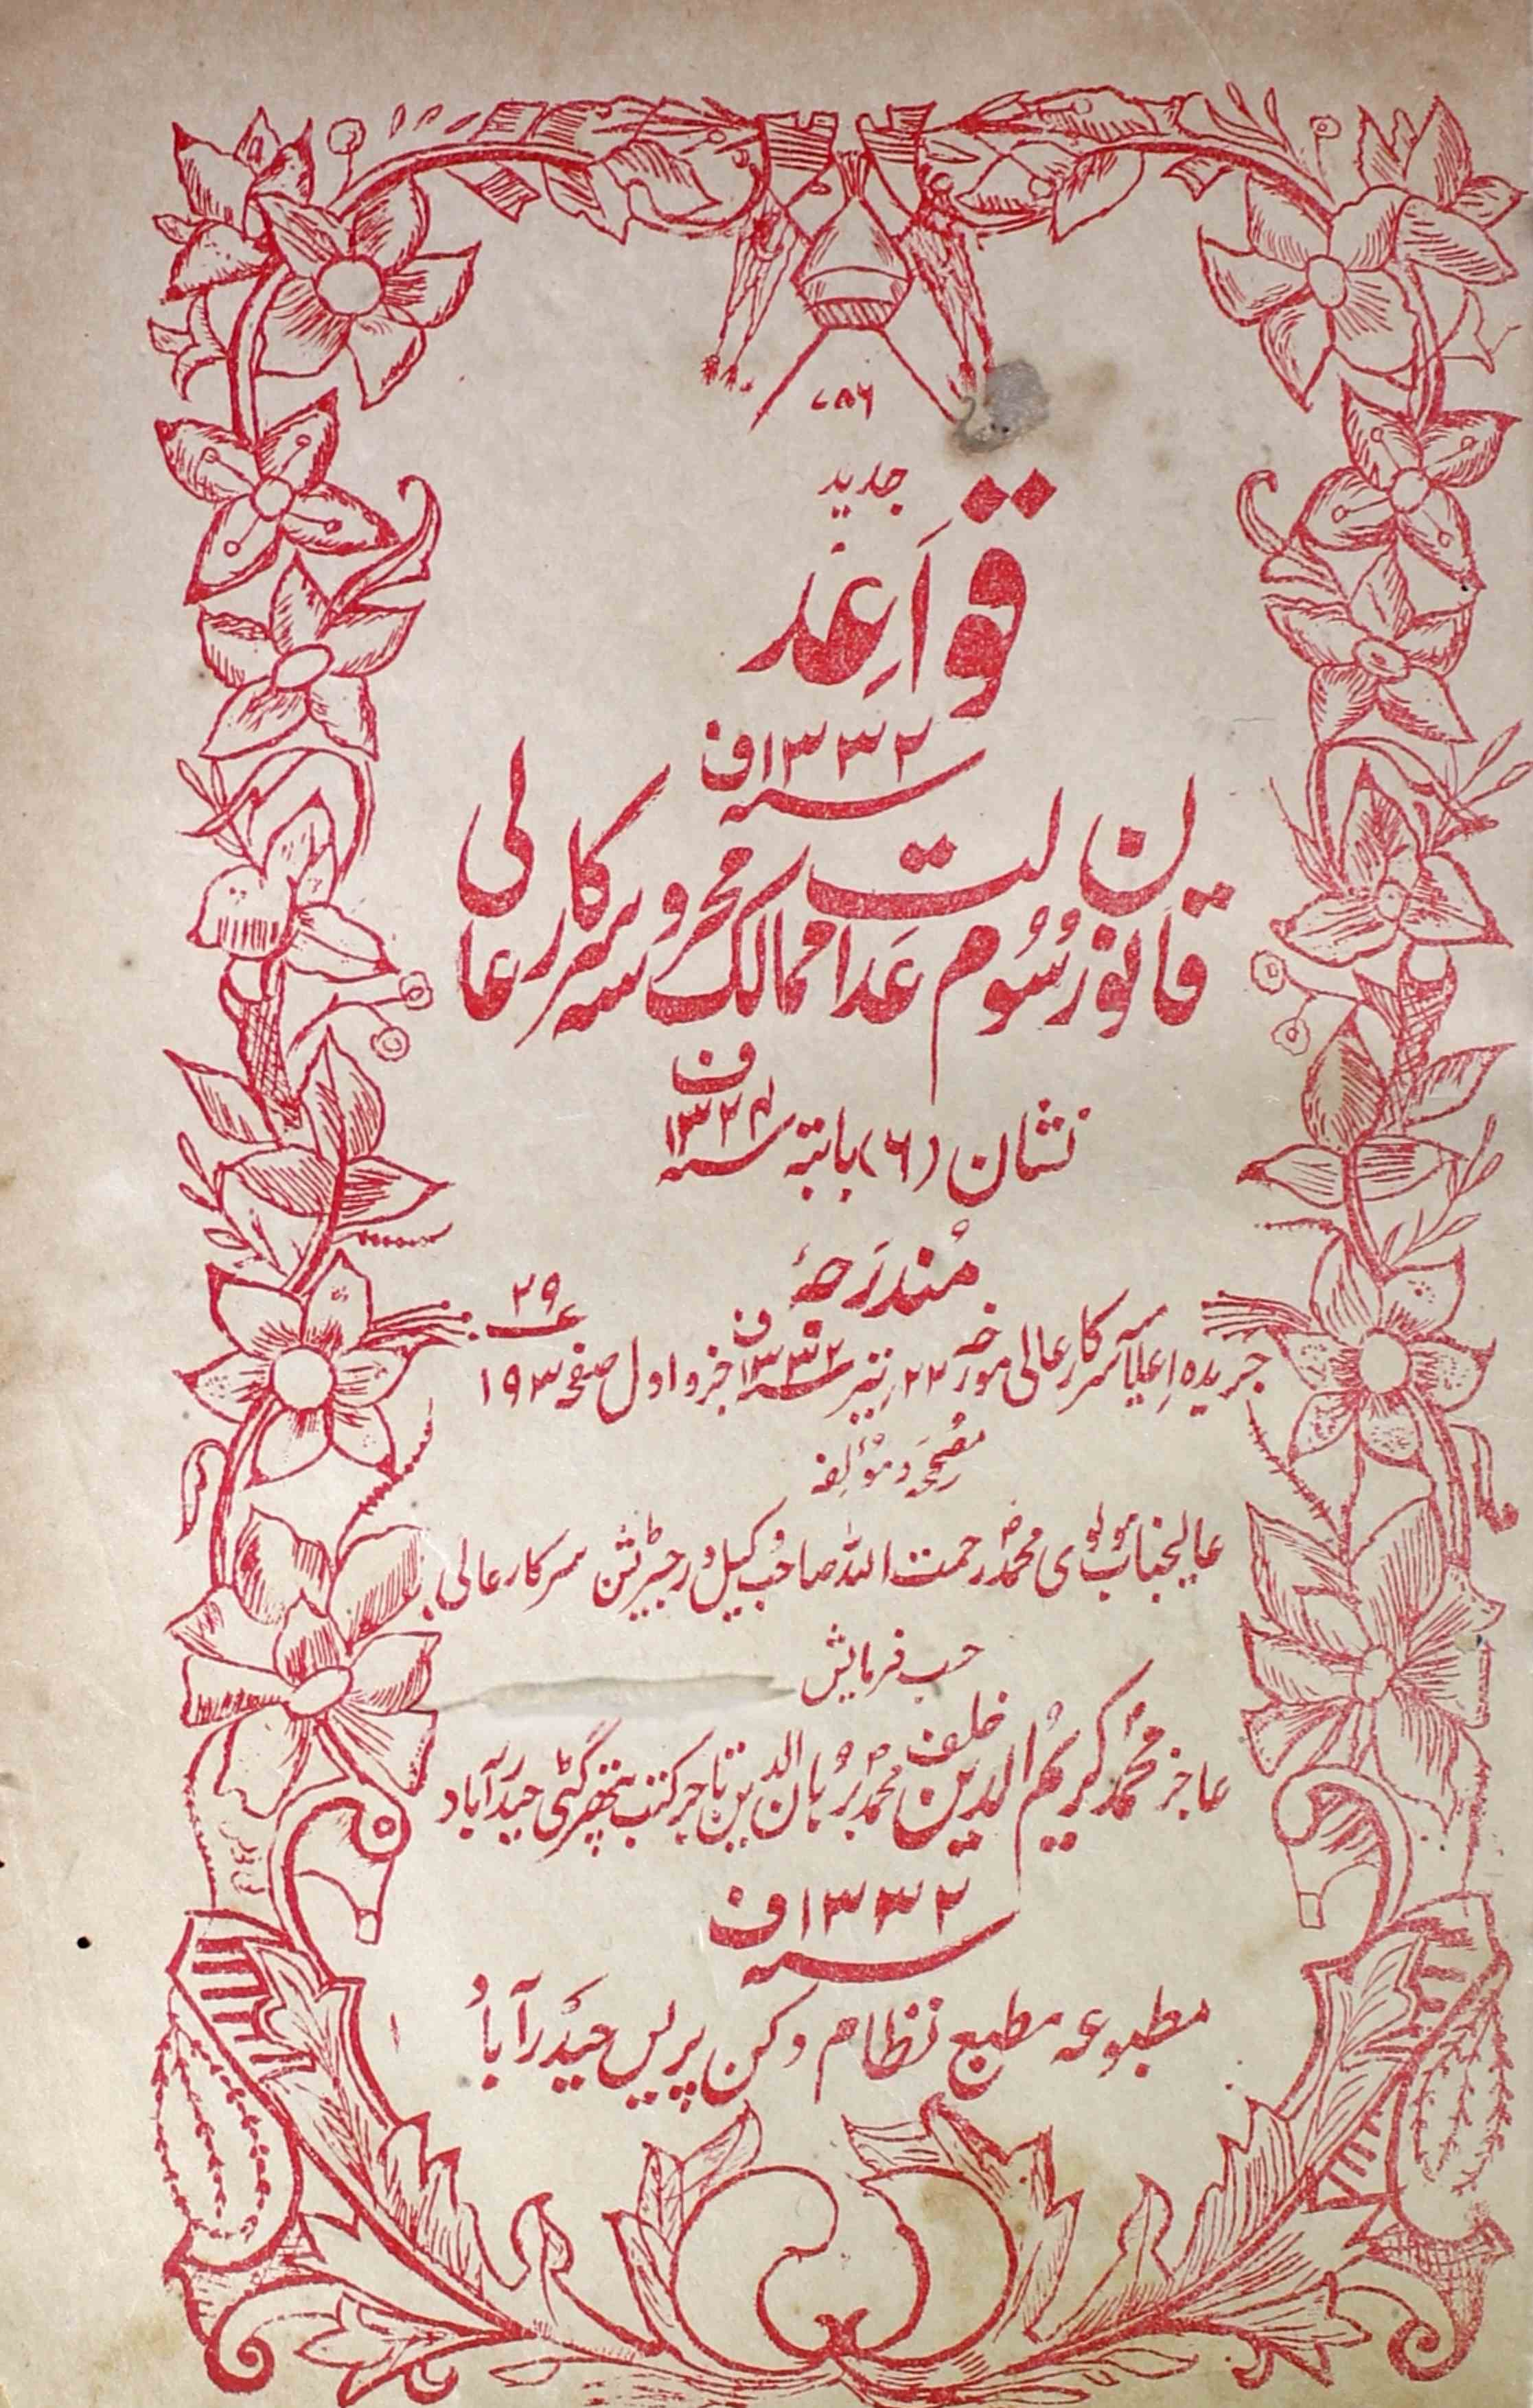 ۷۸۶
جدید
قواعد
سنہ ۱۳۳۲ف
قانون رسوم عدالت ممالک محروسہ سرکار عالی
نشان (۶) بابتہ سنہ ۱۳۲۴ف
مندرجۂ
جریدہ اعلیہ سرکار عالی مورخہ ۲۲ تیر سنہ ۱۳۳۲ف جزو اول صفحہ ۱۹۳ ۲۹
مصححہ و مؤلفہ
عالیجناب مولوی محمد رحمت اللہ صاحب وکیل و رجسٹریشن سرکار عالی
حسب فرمایش
عاجز محمد کریم الدین خلف محمد برہان الدین تاجر کتب پتھر گٹی حیدرآباد
سنہ ۱۳۳۲ف
مطبوعہ مطبع نظام دکن پریس حیدرآباد